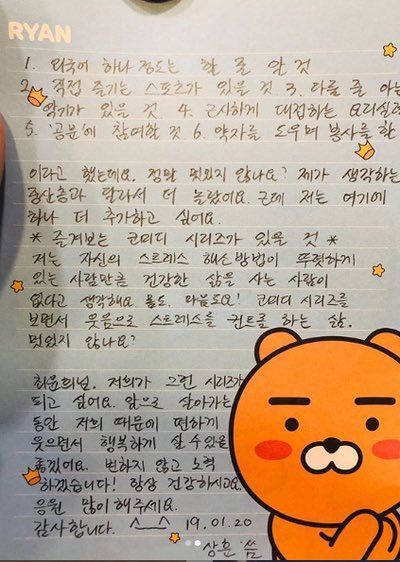 RYAN
1. 외국어 하나 정도는 할 줄 알 것
2. 직접 즐기는 스포츠가 있을 것 3. 다룰 줄 아는
악기가 있을 것. 4. 근사하게 대접하는 요리실력
5. '공분'에 참여할 것 6. 약자를 도우며 봉사를 할
이라고 했는데요. 정말 멋있지 않나요? 제가 생각하는
중산층과 달라서 더 놀랐어요. 근데 저는 여기에
하나 더 추가하고 싶어요.
* 즐겨보는 코미디 시리즈가 있을 것 *
저는 자신의 스트레스 해소방법이 뚜렷하게
있는 사람만큼 건강한 삶을 사는 사람이
없다고 생각해요. 몸도. 마음도요! 코미디 시리즈를
보면서 웃음으로 스트레스를 컨트롤 하는 삶.
멋있지 않나요?
최윤희님. 저희가 그런 시리즈가
되고 싶어요. 앞으로 살아가는
동안 저희 때문에 편하게
웃으면서 행복하게 살 수 있음
좋겠어요. 변하지 않고 노력
하겠습니다! 항상 건강하시고요.
응원 많이 해주세요.
감사합니다. ^__^ 19.01.20
상훈 씀